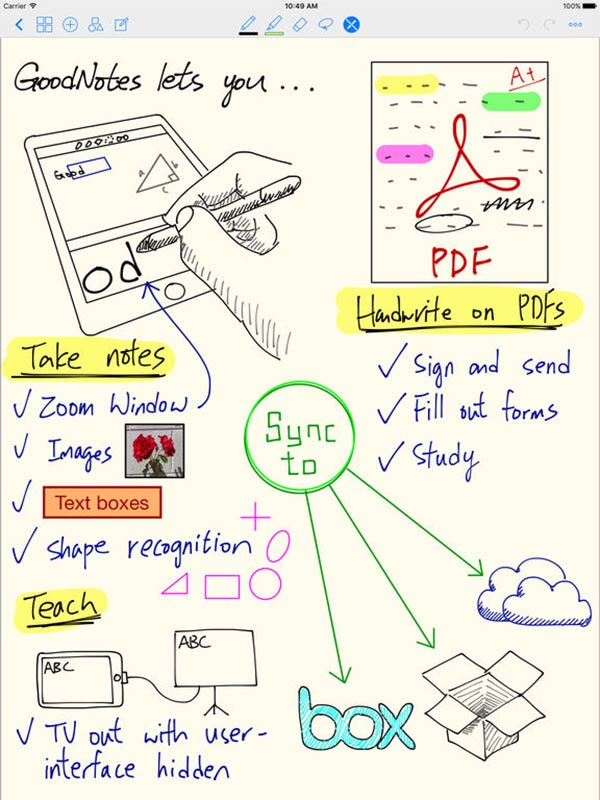 Carrier
10:49 AM
100%
GoodNotes lets you ...
Good
a
b
c
od
A+
PDF
Handwrite on PDFs
Sign and send
Fill out forms
Study
Take notes
Zoom Window
Images
Text boxes
shape recognition
Sync
to
box
Teach
ABC
ABC
TV out with user-
interface hidden